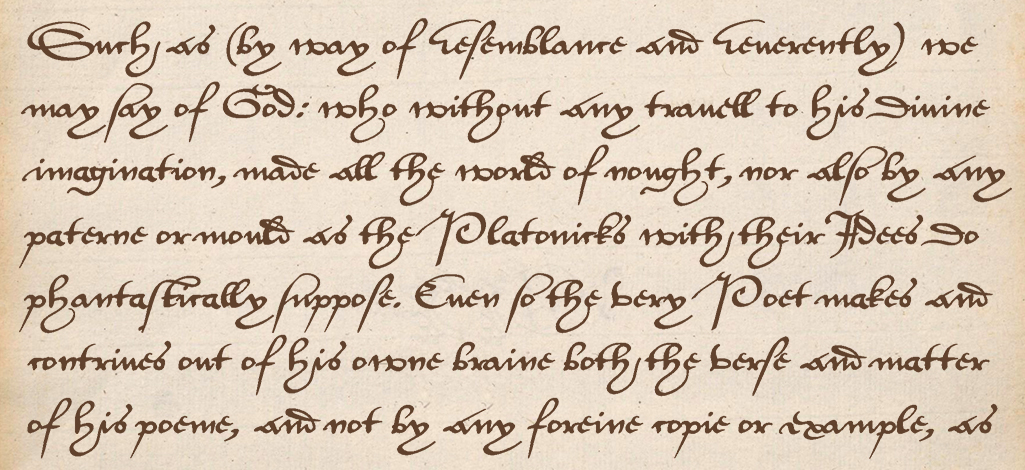 Such, as (by way of resemblance and reuerently) we
may say of God: who without any trauell to his diuine
imagination, made all the world of nought, nor also by any
paterne or mould as the Platonicks with their Idees do
phantastically suppose. Euen so the very Poet makes and
contriues out of his owne braine both the verse and matter
of his poeme, and not by any foreine copie or example, as